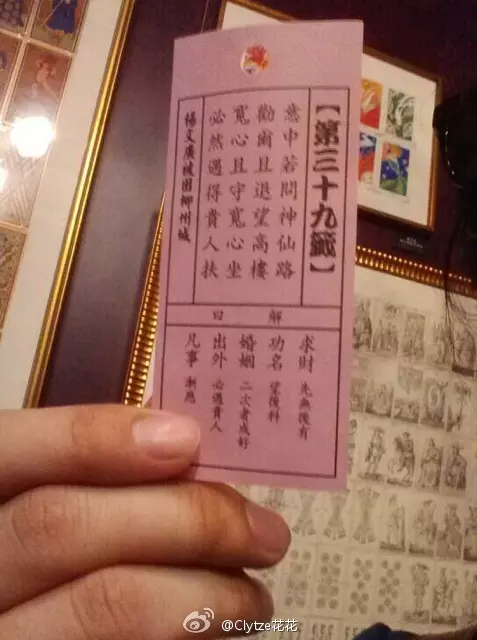 【第三十九籤】
意中若問神仙路
勸爾且退望高樓
寬心且守寬心坐
必然遇得貴人扶
楊文廣被困柳州城
解曰
求財 先無後有
功名 望後科
婚姻 二次者成好
出外 必遇貴人
凡事 漸應
@Clytze花花